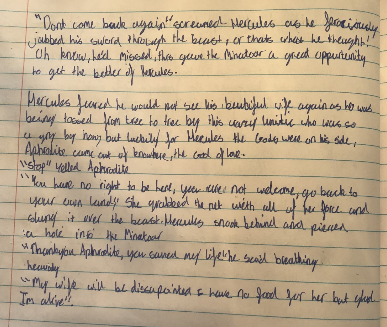 "Dont come back again" screamed Hercules as he ferociously
jabbed his sword through the beast, or thats what he thought!
Oh know, he'd missed, this gave the Minataur a great oppurtunity
to get the better of Hercules.
Hercules feared he would not see his beutiful wife again as he was
being tossed from tree to tree by this crazy lunitic who was so
angry by now, but luckily for Hercules the Gods were on his side,
Aphrodite came out of knowhere, the God of love.
"Stop" yelled Aphrodite
"You have no right to be here, you are not welcome, go back to
your own land" She grabbed the net with all of her force and
slung it over the beast. Hercules snook behind and pierced
a hole into the Minataur
"Thankyou Aphrodite, you saved my life" he said breathing
heavaly
"My wife will be dissapointed I have no food for her but glad
I'm alive"